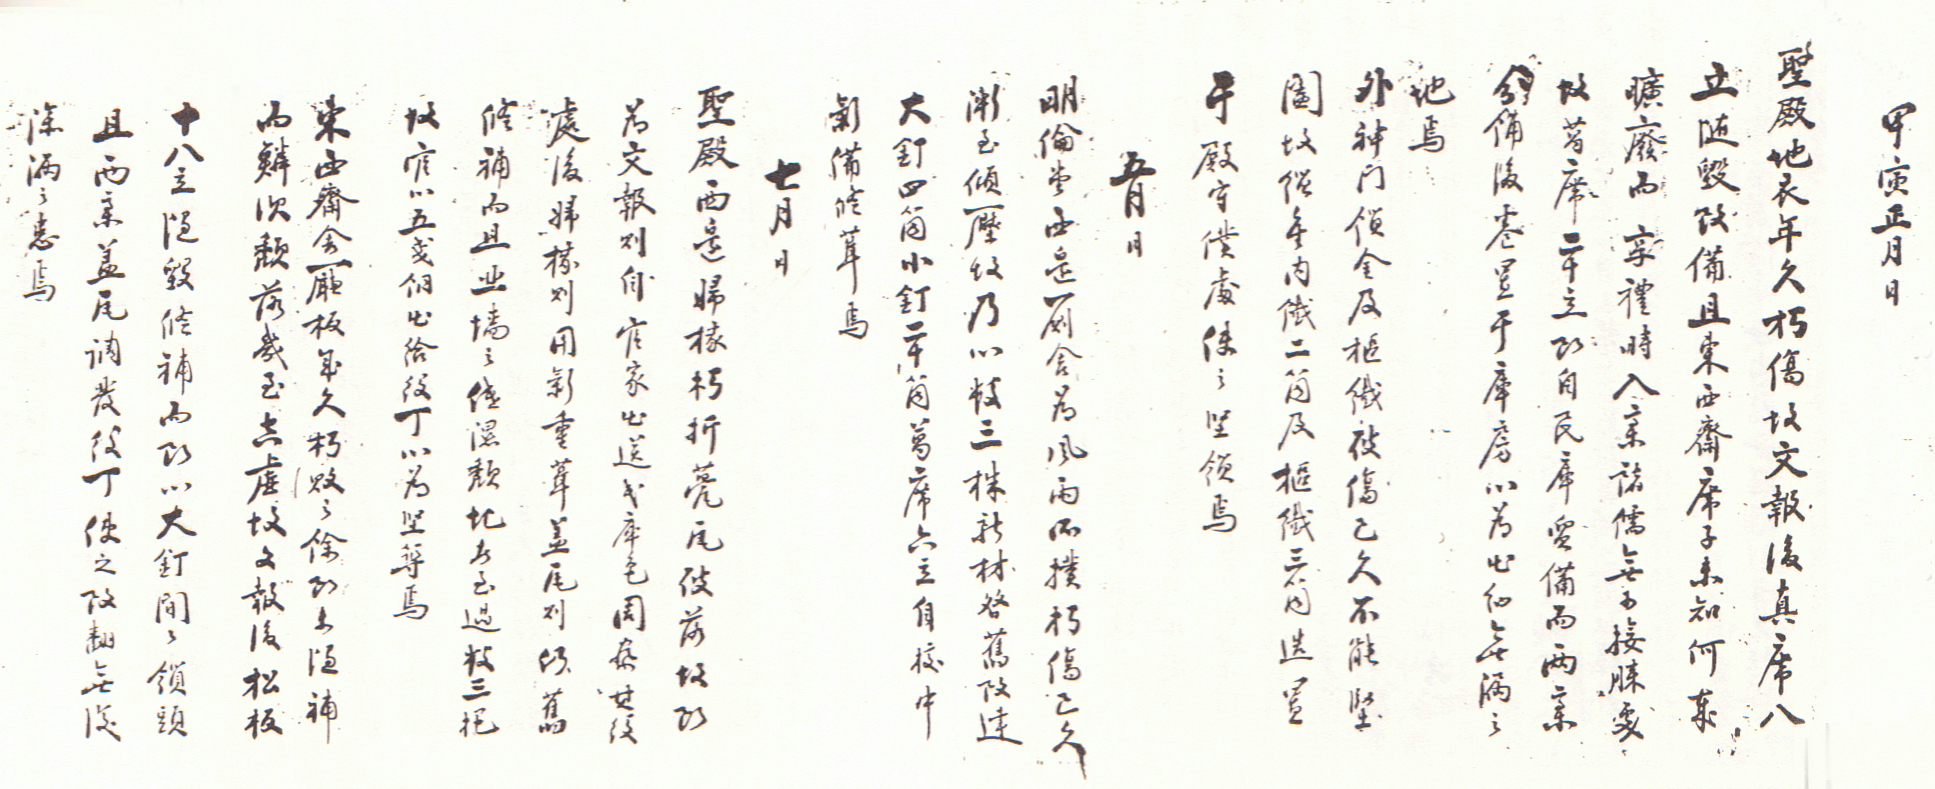 甲寅正月日
聖殿地衣年久朽傷故文報後真席八
立随毀改備且東西齋席子未知何歲
曠廢而享禮時入齋諸儒無可接膝處
故莒席二十立段自民庫貿備而兩齋
分備後卷置于庫房以爲出仙無漏之
地焉
外神門鎖金及樞鐵被傷已久不能堅
固故鎖金內鐵二箇及樞鐵三箇造置
于殿守僕處使之堅鎖焉
五月日
明倫堂西邊厠舍爲風雨所撲朽傷已久
漸至傾壓故乃以數三株新材答舊改建
大釘四箇小釘二十箇莒席六立自校中
新備修葺焉
七月日
聖殿西邊婦椽朽折甍瓦破落故
爲文報則自官家出送戎庫色周察其役
處後婦椽則用新重葺蓋瓦則仍舊
修補而且北墻之低濕頹圮者至過數三把
故官以五戔銅出給役丁以爲堅築焉
東西齋舍廳板年久朽敗之餘段未隨補
而鱗次頹落幾至空虛故文報後松板
十八立隨毀修補而段以大釘間間鎖頭
且兩齋蓋瓦調發役丁使之改翻無復
滲漏之患焉